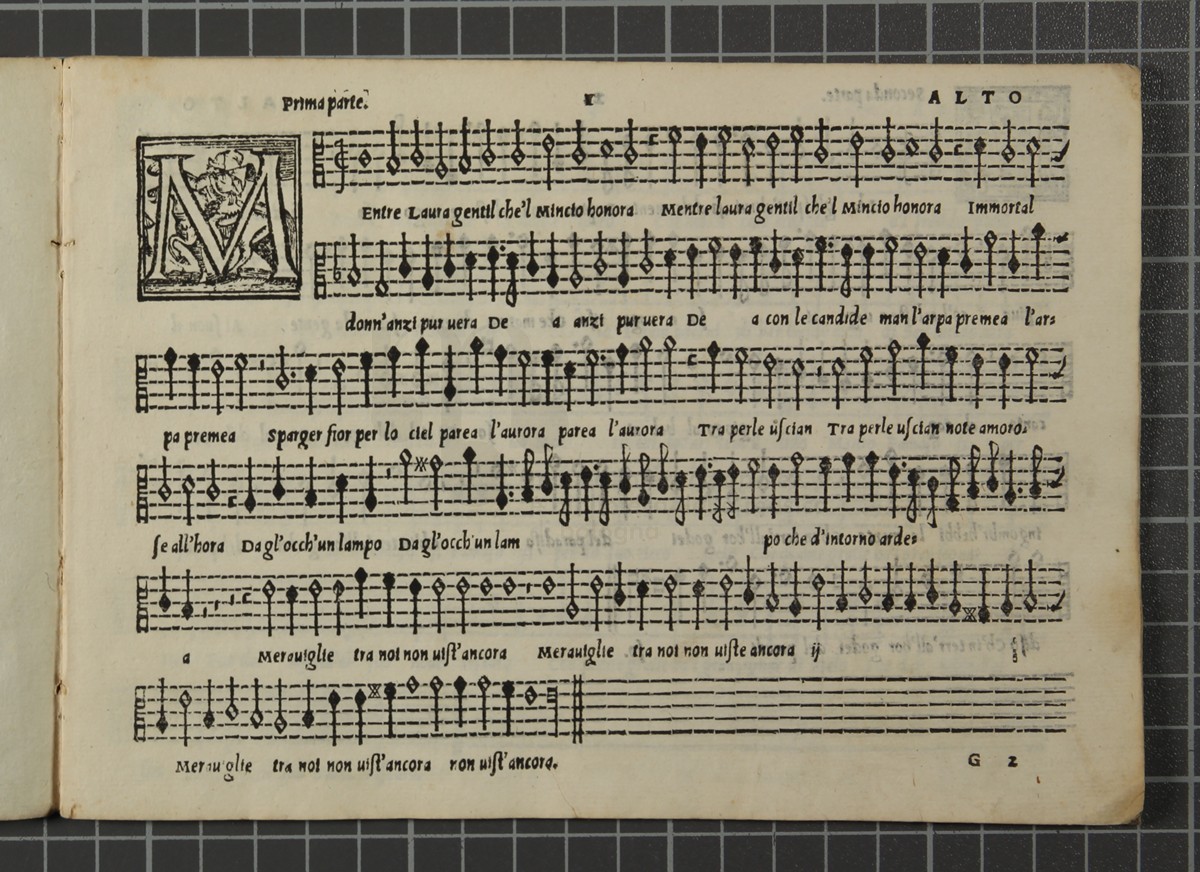 Prima parte. 1 ALTO
M
Entre Laura gentil che'l Mincio honora Mentre laura gentil che'l Mincio honora Immortal
donn'anzi pur uera De a anzi pur uera De a con le candide man l'arpa premea l'ar=
pa premea Sparger fior per lo ciel parea l'aurora parea l'aurora Tra perle uscian Tra perle uscian note amoro=
se all'hora Da gl'occh'un lampo Da gl'occh'un lam po che d'intorno arde=
a Merauiglie tra noi non uist'ancora Merauiglie tra noi non uiste ancora ij
Merauiglie tra noi non uist'ancora non uist'ancora.
G 2